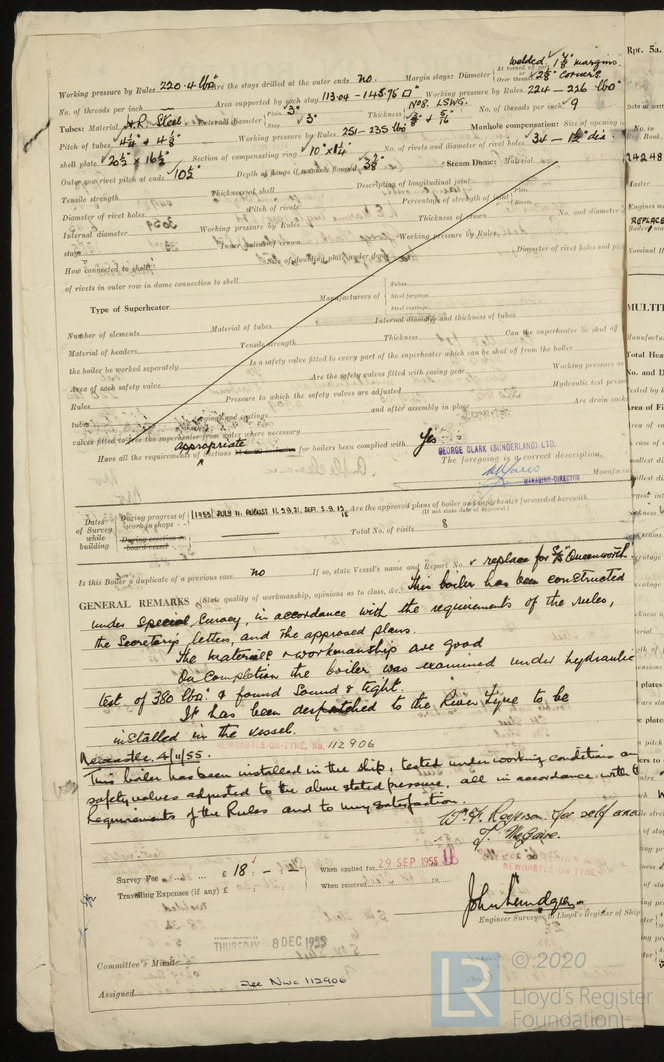 welded 1⅞" margins.
Working pressure by Rules 220.4 lbs" Are the stays drilled at the outer ends no. Margin stays: Diameter
No. of threads per inch Area supported by each stay 113.04 - 143.76 □" Working pressure by Rules 224 - 226 lbs"
Tubes: Material H.R. Steel External diameter Plain 3" Stay 3" Thickness No 8. LSWG. 5/16 No. of threads per inch 9
Pitch of tubes 4¼" + 4⅛" Working pressure by Rules 251 - 235 lbs" Manhole compensation: Size of opening in
shell plate 20½" x 16½" Section of compensating ring 10" x 1¼" No. of rivets and diameter of rivet holes 34 - dia.
Outer row rivet pitch at ends 10½" Depth of flange if manhole flanged Steam Dome: Material
Tensile strength Thickness of shell Description of longitudinal joint
Diameter of rivet holes Pitch of rivets Percentage of strength of joint Rivets
Internal diameter Working pressure by Rules Thickness of crown No. and diameter
stays Inner radius of crown Working pressure by Rules
How connected to shell Size of doubling plate under dome Diameter of rivet holes and
of rivets in outer row in dome connection to shell
Type of Superheater Manufacturers of Tubes
Steel forgings
Steel castings
Number of elements Material of tubes Internal diameter and thickness of tubes
Material of headers Tensile strength Thickness Can the superheater be shut off
the boiler be worked separately Is a safety valve fitted to every part of the superheater which can be shut off from the boiler
Area of each safety valve Are the safety valves fitted with easing gear Working pressure
Rules Pressure to which the safety valves are adjusted Hydraulic test pressure
tubes forgings and castings and after assembly in place Are drain cocks
valves fitted to free the superheater from water where necessary
appropriate
Have all the requirements of Sections for boilers been complied with Yes
GEORGE CLARK (SUNDERLAND) LTD.
The foregoing is a correct description,
MANAGING DIRECTOR Manufacturer
Dates of Survey while building During progress of work in shops 1955 JULY 11. AUGUST 11.29.31. SEPT. 5.9.13 15 Are the approved plans of boiler and superheater forwarded herewith
(If not state date of approval.)
During erection on board vessel Total No. of visits 8
Is this Boiler a duplicate of a previous case no If so, state Vessel's name and Report No. replace for S/S "Queenworth."
GENERAL REMARKS (State quality of workmanship, opinions as to class, &c. This boiler has been constructed
under Special Survey, in accordance with the requirements of the rules,
the Secretary's letters, and the approved plans.
The materials & workmanship are good
On completion the boiler was examined under hydraulic
test of 380 lbs" & found sound & tight.
It has been despatched to the River Tyne to be
installed in the vessel.
NEWCASTLE-ON-TYNE, No. 112906
Newcastle. 4/11/55.
This boiler has been installed in the ship, tested under working conditions and
safety valves adjusted to the above stated pressure, all in accordance with the
requirements of the Rules and to my satisfaction.
for self and
T. McGuire.
Survey Fee £ 18 : - : - When applied for 29 SEP 1955
Travelling Expenses (if any) £ When received 19
John Lundgren
Engineer Surveyor to Lloyd's Register of Ship
THURSDAY 8 DEC 1955
Committee's Minute
Assigned See Nwc 112906
Rpt. 5a.
No. in
Reg. Book.
24248
Master
Engines
REPLACE
Boiler
Nominal
MULTI
Manufacture
Total Hea
No. and D
Tested by
Area of Fi
LR © 2020
Lloyd's Register
Foundation